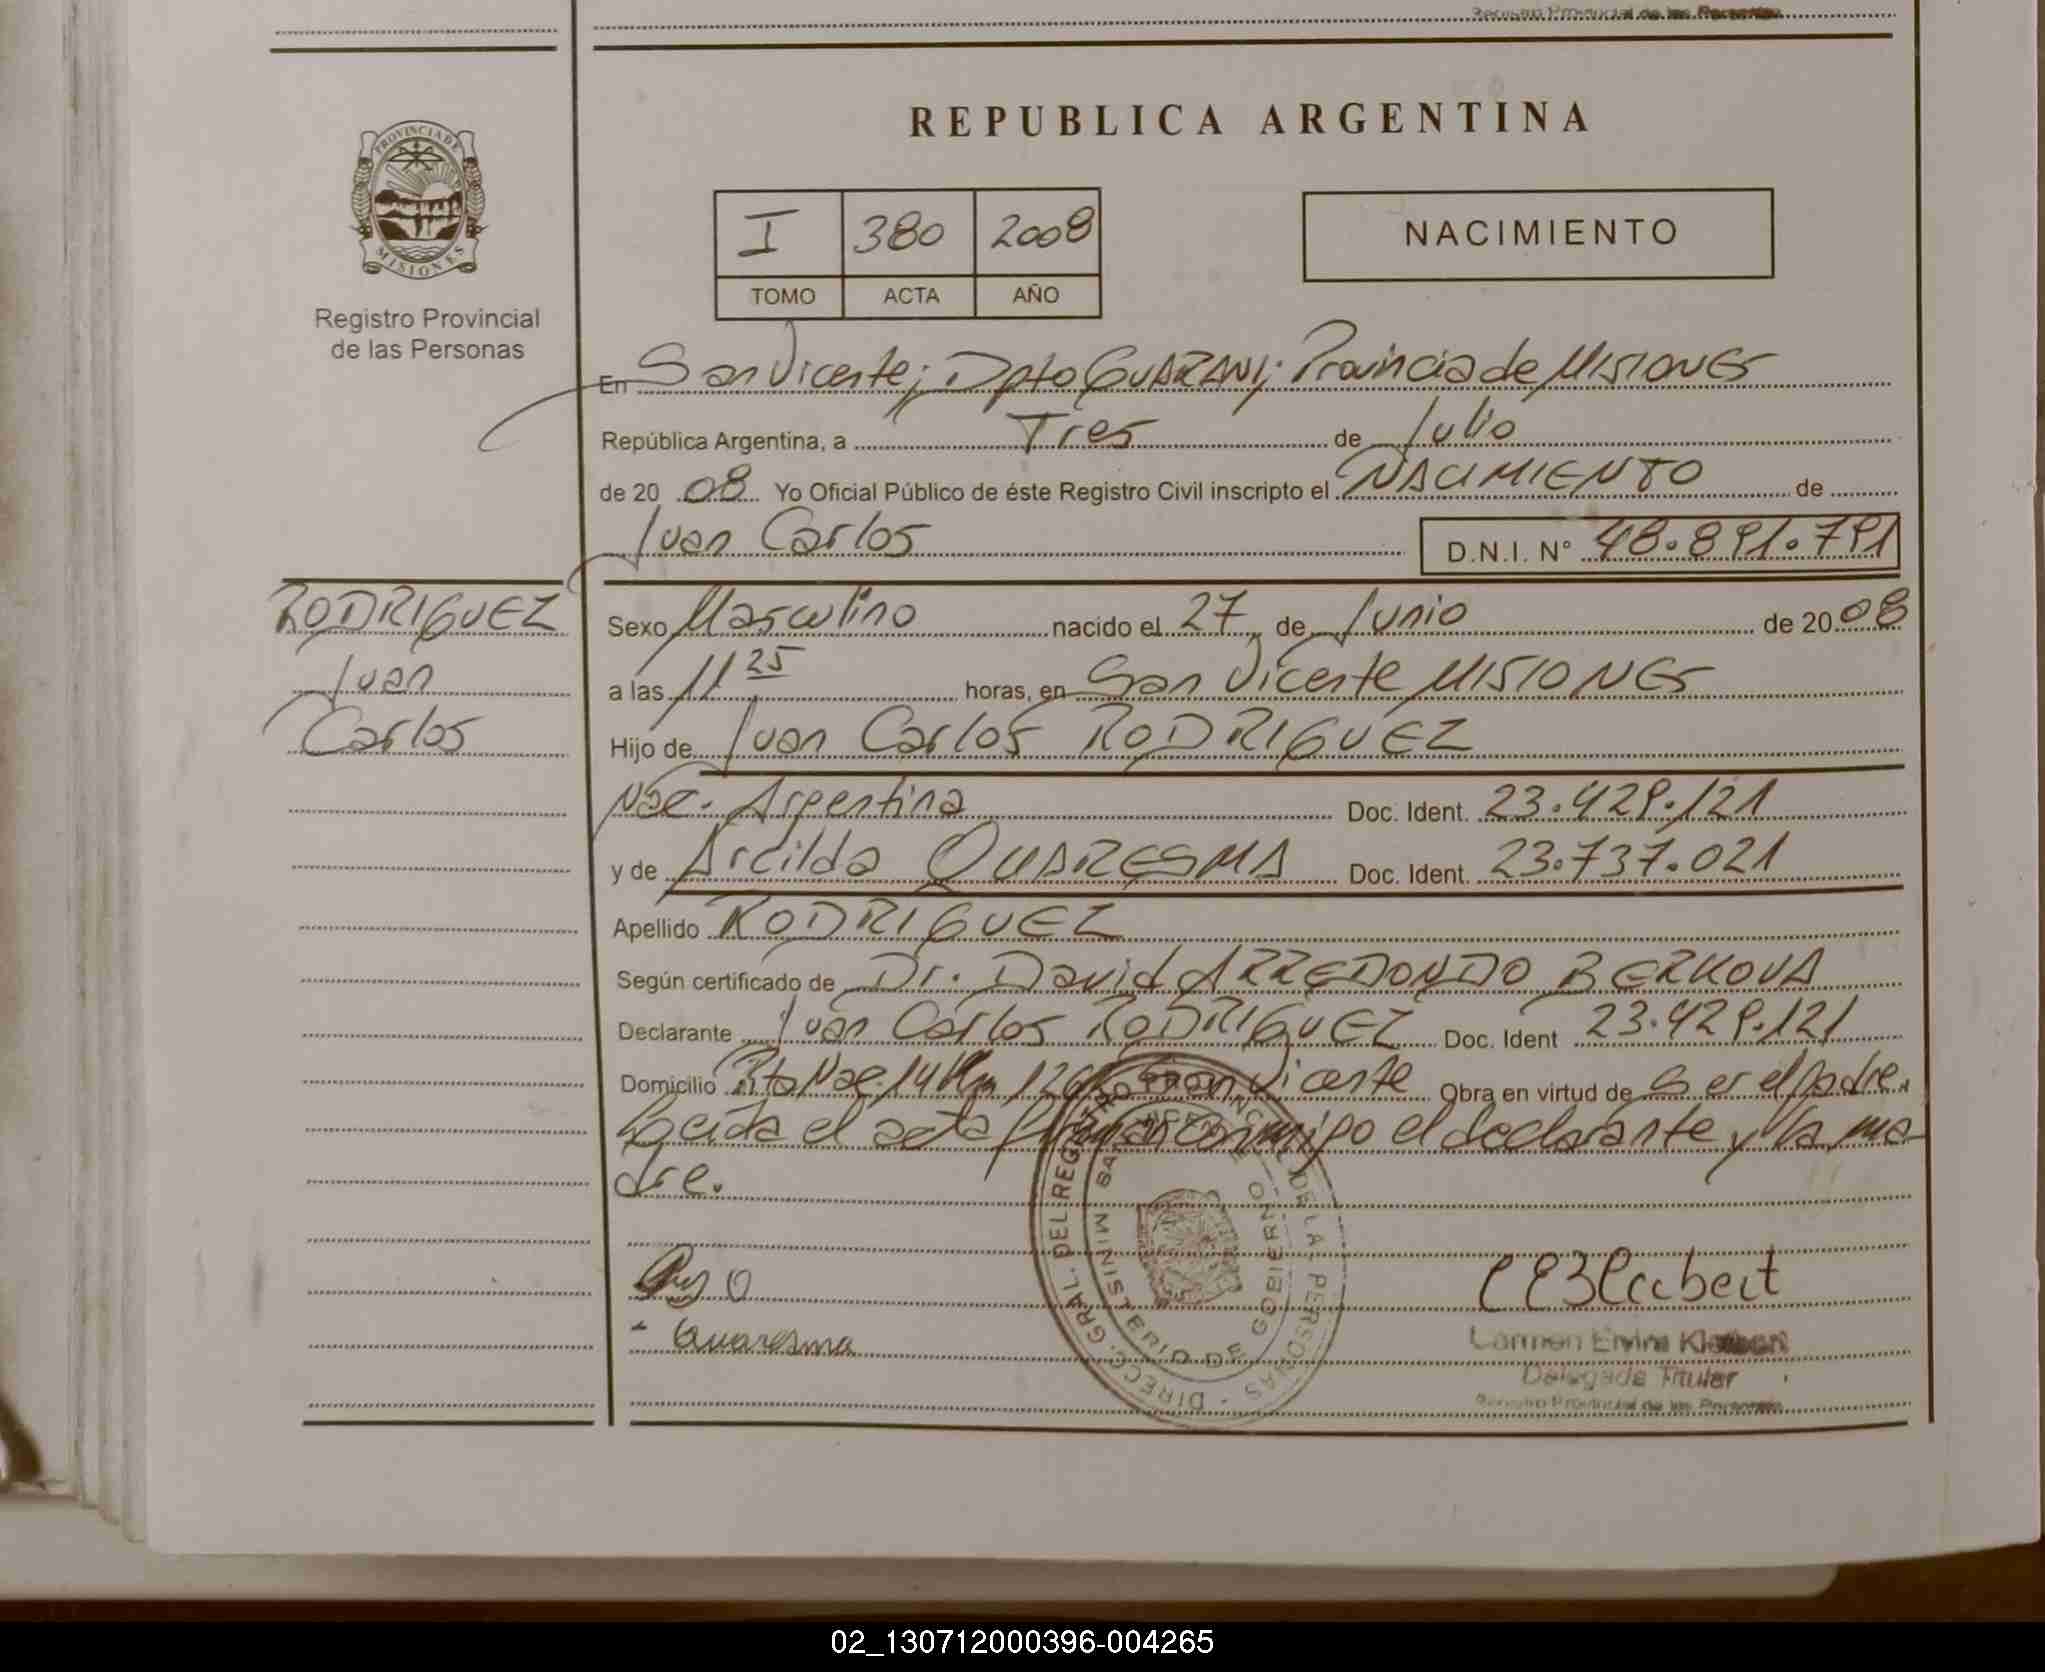 Registro Provincial de las Personas
REPUBLICA ARGENTINA
PROVINCIA DE
MISIONES
Registro Provincial
de las Personas
I 380 2008
TOMO ACTA AÑO
NACIMIENTO
En San Vicente; Dpto GUARANI; Provincia de MISIONES
República Argentina, a Tres de Julio
de 20 08 Yo Oficial Público de éste Registro Civil inscripto el NACIMIENTO de
Juan Carlos D.N.I. Nº 48.891.791
RODRIGUEZ
Juan
Carlos
Sexo Masculino nacido el 27 de Junio de 2008
a las 11 25 horas, en San Vicente MISIONES
Hijo de Juan Carlos RODRIGUEZ
Nac. Argentina Doc. Ident. 23.429.121
y de Arcilda QUARESMA Doc. Ident. 23.737.021
Apellido RODRIGUEZ
Según certificado de Dr. David ARREDONDO BERKOVA
Declarante Juan Carlos RODRIGUEZ Doc. Ident 23.429.121
Domicilio Rta Nac. 14 Km San Vicente Obra en virtud de Ser el padre.
Leída el acta conmigo el declarante y la ma-
dre.
DIRECC. GRAL. DEL REGISTRO PROVINCIAL DE LA PERSONAS -
MINISTERIO DE GOBIERNO
Quaresma
Carmen Elvira
Delegada Titular
Registro Provincial de las Personas
02_130712000396-004265